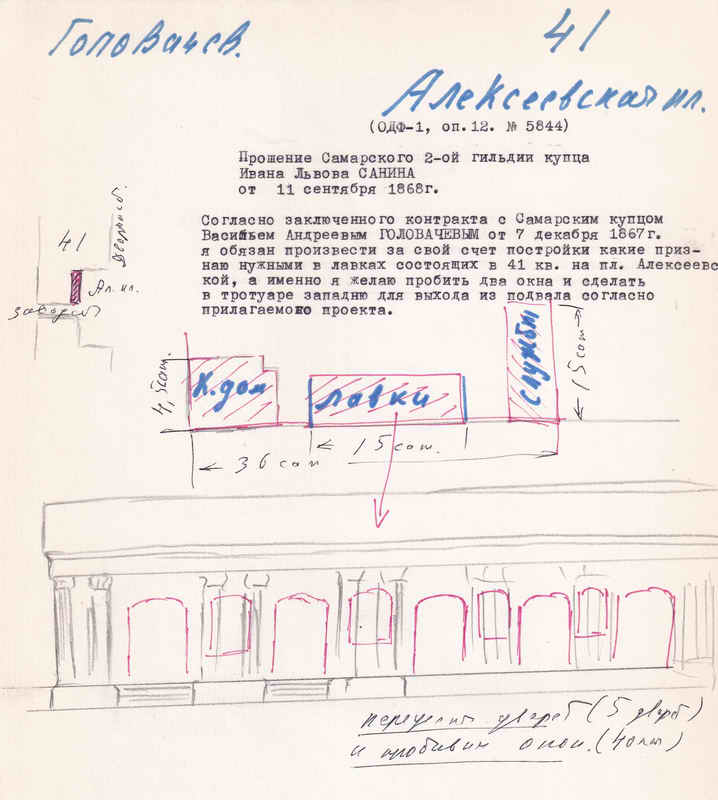 Головачев.
41
Алексеевская пл.
(ОДФ-1, оп.12. № 5844)
Прошение Самарского 2-ой гильдии купца
Ивана Львова САНИНА
от 11 сентября 1868г.
Согласно заключенного контракта с Самарским купцом
Васильем Андреевым ГОЛОВАЧЕВЫМ от 7 декабря 1867г.
я обязан произвести за свой счет постройки какие приз-
наю нужными в лавках состоящих в 41 кв. на пл. Алексеевс
кой, а именно я желаю пробить два окна и сделать
в тротуаре западню для выхода из подвала согласно
прилагаемого проекта.
41
Ал. пл.
4,5 саж.
К. дом
лавки
службы
15 саж
15 саж.
36 саж
дверей (5 дверей)
и пробивки окон. (4 окна)